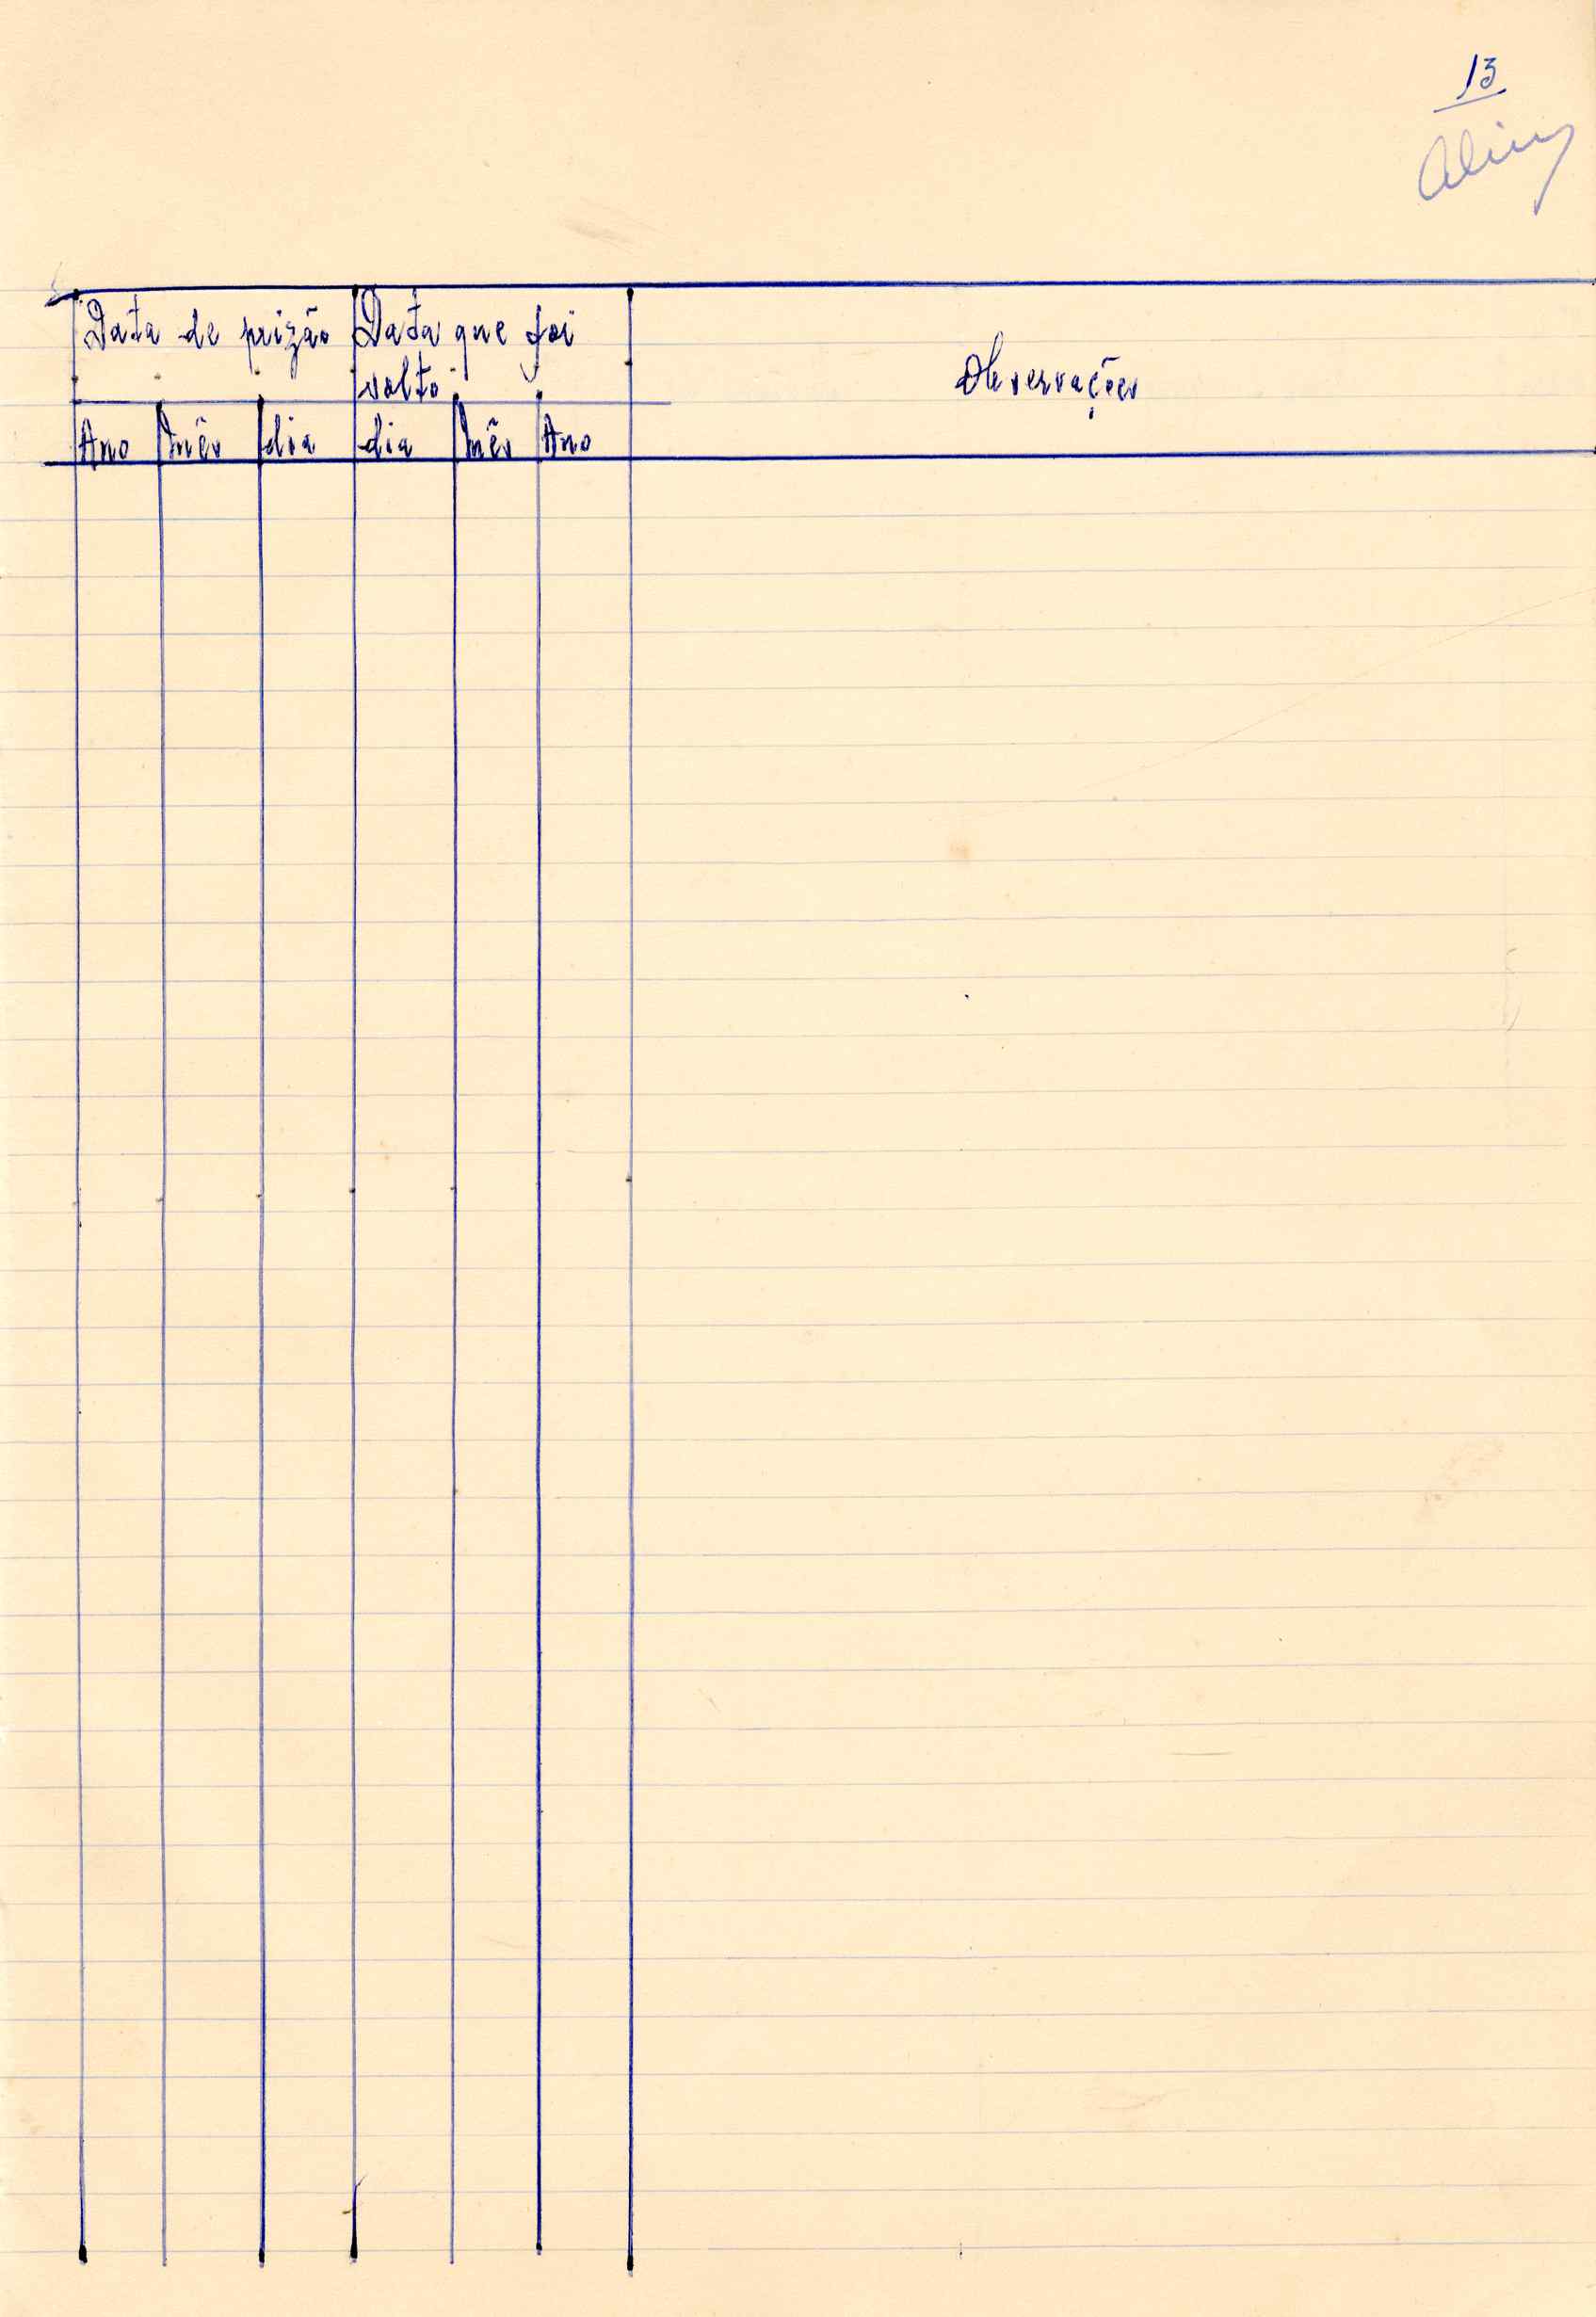 13
Data de prizão Data que foi
solto
Observações
Ano Mês dia dia Mês Ano